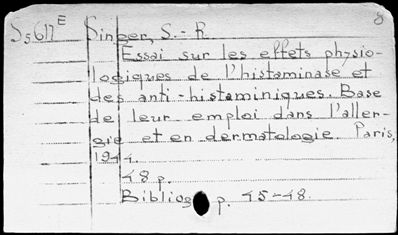 S5617E Singer, S.-R.
Essai sur les effets physio-
logiques de l'histaminase et
des anti-histaminiques. Base
de leur emploi dans l'aller-
gie et en dermatologie. Paris,
1944.
48 p.
Bibliog p. 45-48.